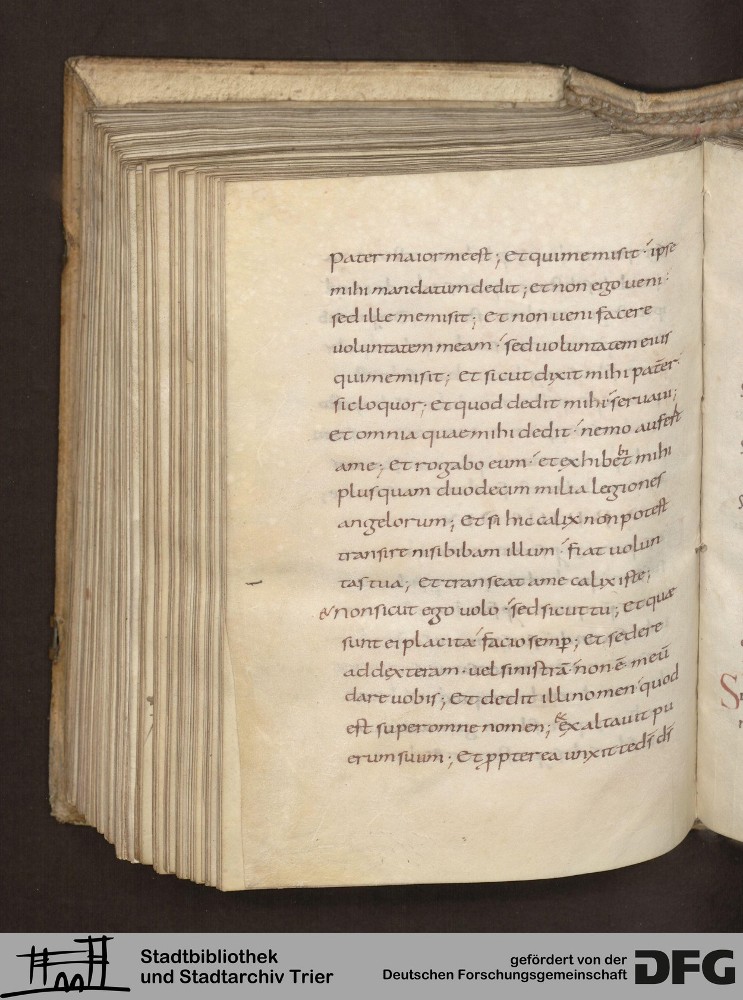 pater maior me est; et qui me misit · ipse
mihi mandatum dedit; et non ego ueni ·
sed ille me misit; et non ueni facere
uoluntatem meam · sed uoluntatem eius
qui me misit; et sicut dixit mihi pater ·
sic loquor; et quod dedit mihi · seruaui;
et omnia quae mihi dedit · nemo aufert
a me; et rogabo eum · et exhibebit mihi
plus quam duodecim milia legiones
angelorum; et si hic calix non potest
transire nisi bibam illum · fiat uolun
tas tua; et transeat a me calix iste;
& non sicut ego uolo · sed sicut tu; et quae
sunt ei placita · facio semp; et sedere
ad dexteram · uel sinistrā · non ē meū
dare uobis; et dedit illi nomen · quod
est super omne nomen; & exaltauit pu
erum suum; et ppterea unxit te ds ds
Stadtbibliothek
und Stadtarchiv Trier
gefördert von der
Deutschen Forschungsgemeinschaft
DFG